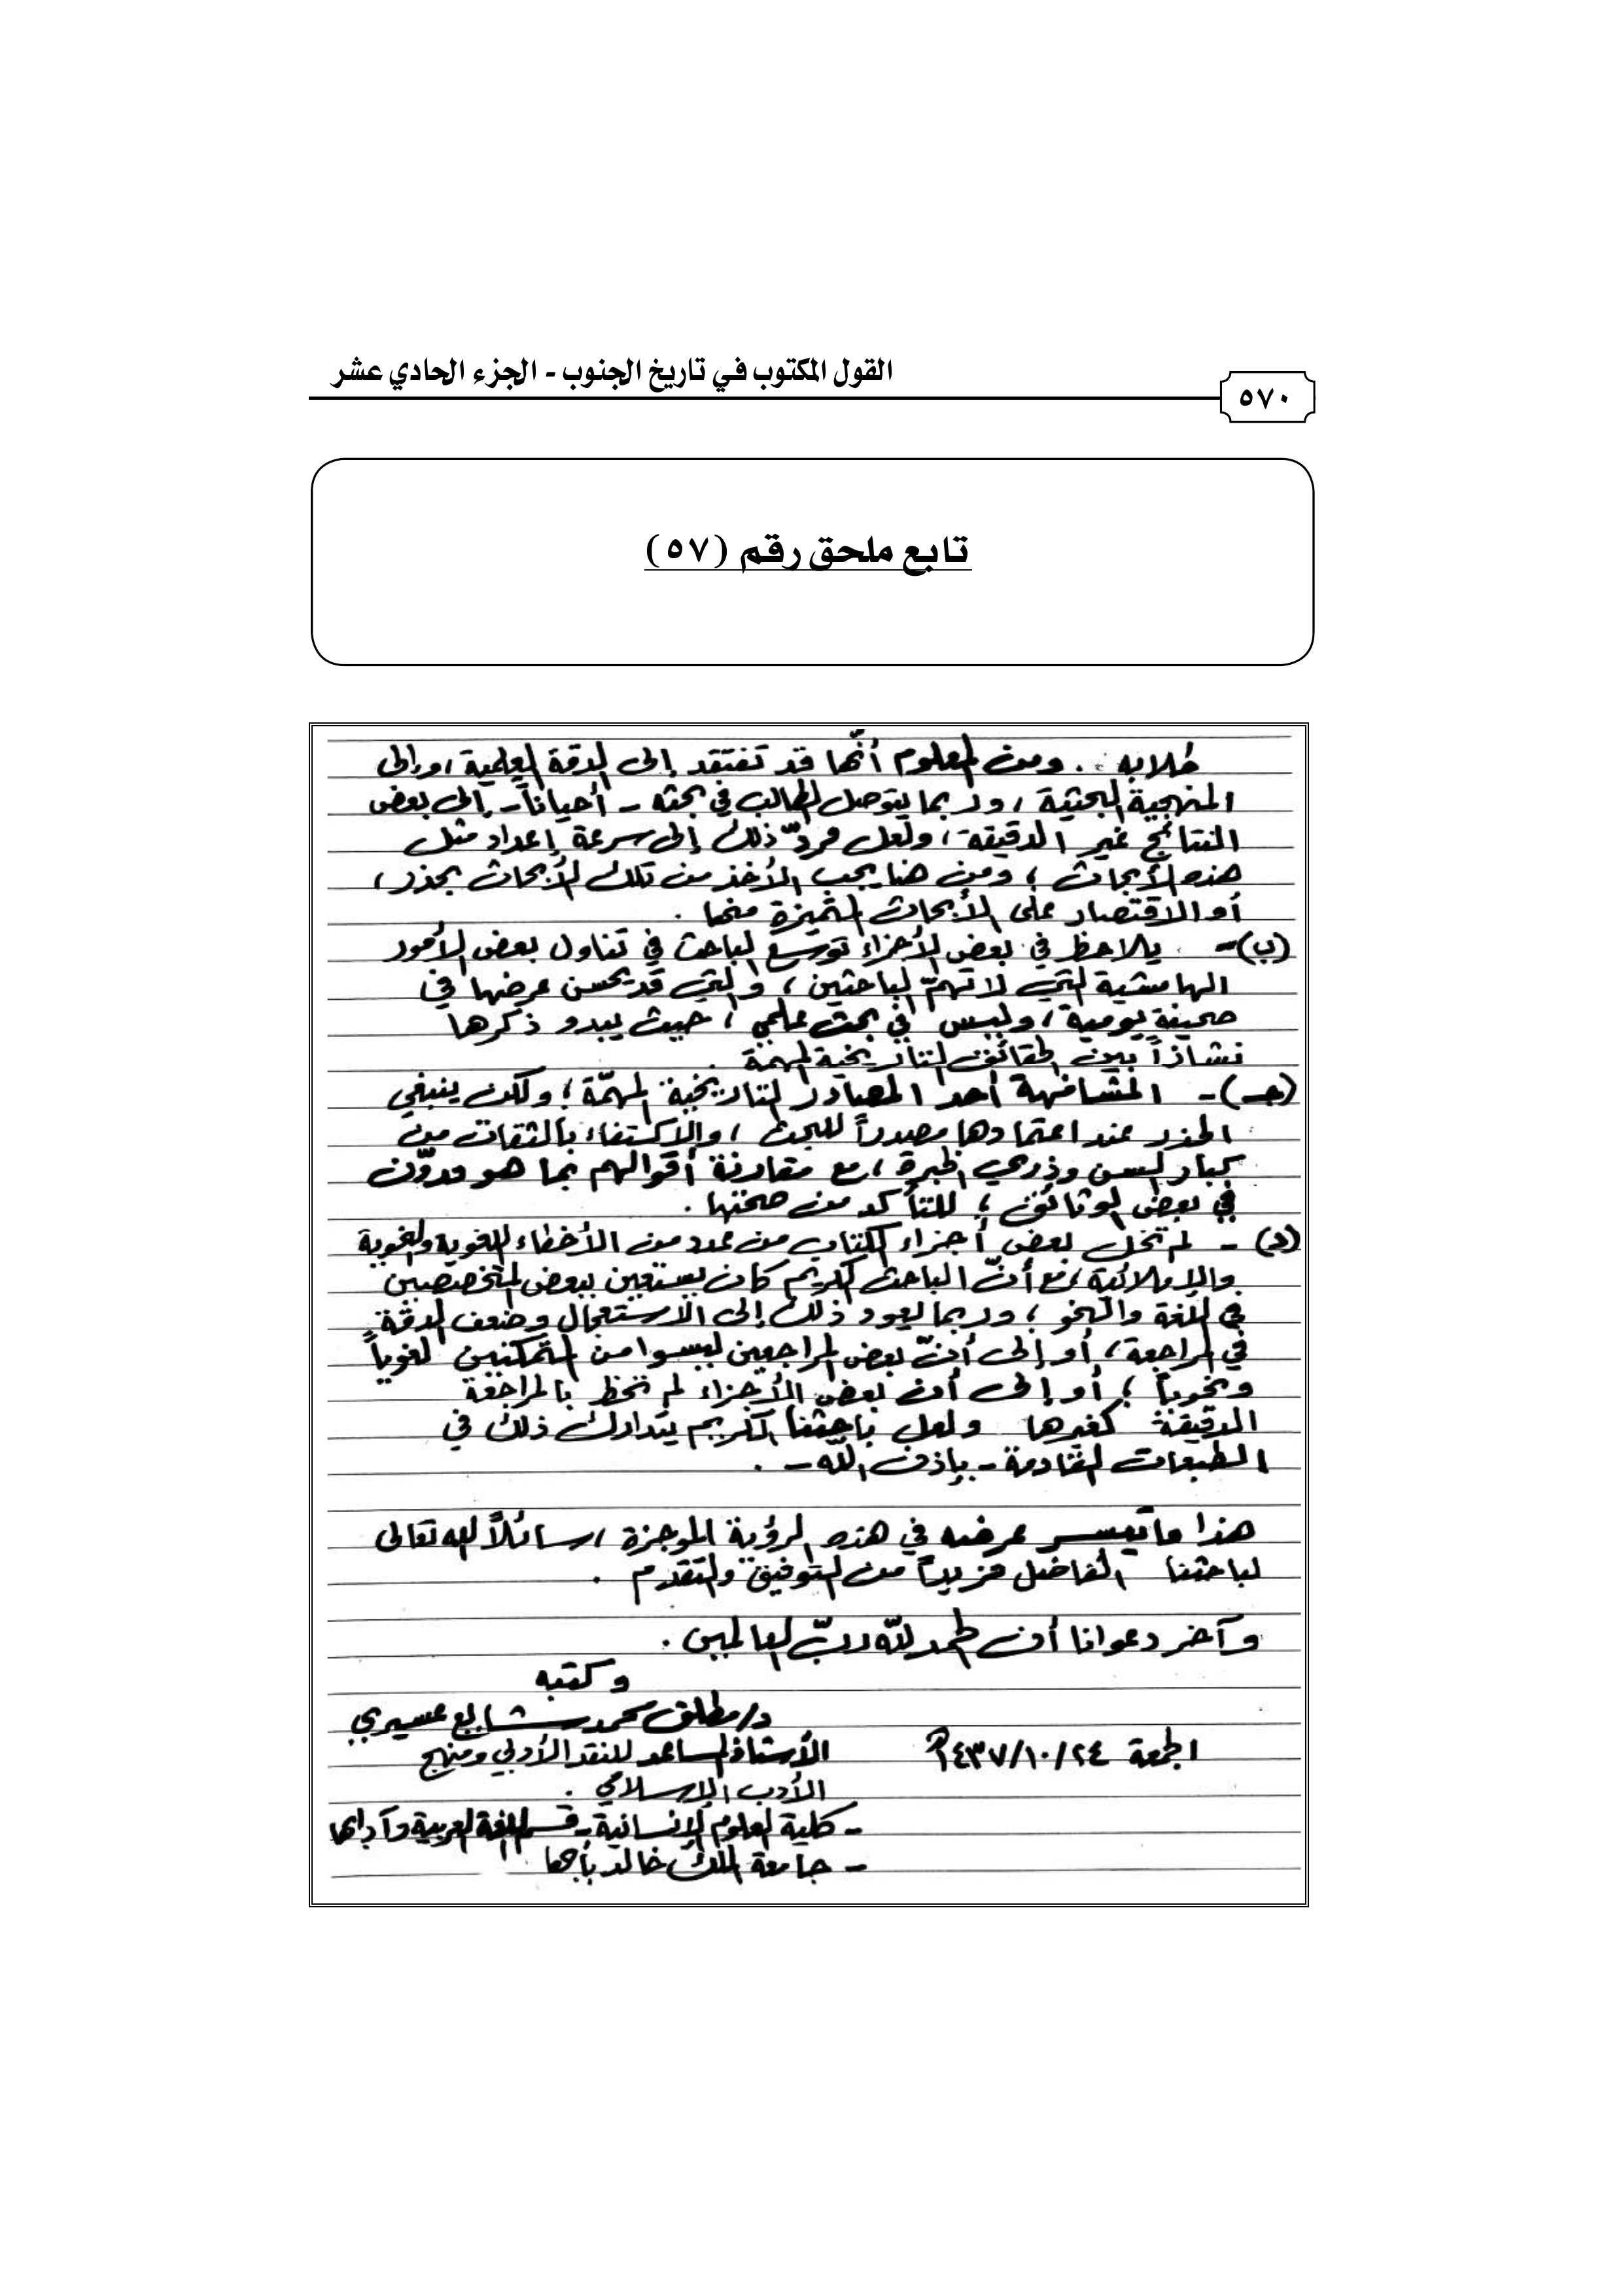 القول المكتوب في تاريخ الجنوب - الجزء الحادي عشر
٥٧٠
تابع ملحق رقم (٥٧)
طلابه . ومن المعلوم أنّها قد تفتقد إلى الدقة العلمية ، وإلى
المنهجية البحثية ، وربما يتوصل الطالب في بحثه - أحياناً - إلى بعض
النتائج غير الدقيقة ، ولعل مردّ ذلك إلى سرعة إعداد مثل
هذه الأبحاث ؛ ومن هنا يجب الأخذ من تلك الأبحاث بحذر ،
أو الاقتصار على الأبحاث المتميزة منها .
(ب) - يلاحظ في بعض الأجزاء توسع الباحث في تناول بعض الأمور
الهامشية التي لا تهمّ الباحثين ، والتي قد يحسن عرضها في
صحيفة يومية ، وليس في بحث علمي ، حيث يبدو ذكرها
نشازاً بين الحقائق التاريخية المهمة .
(جـ) - المشافهة أحد المصادر التاريخية المهمّة ؛ ولكن ينبغي
الحذر عند اعتمادها مصدراً للبحث ، والاكتفاء بالثقات من
كبار السن وذوي الخبرة ، مع مقارنة أقوالهم بما هو مدوّن
في بعض الوثائق ؛ للتأكد من صحتها .
(د) - لم تخل بعض أجزاء الكتاب من عدد من الأخطاء اللغوية والنحوية
والإملائية ، مع أنّ الباحث الكريم كان يستعين ببعض المتخصصين
في اللغة والنحو ؛ وربما يعود ذلك إلى الاستعجال وضعف الدقة
في المراجعة ، أو إلى أنّ بعض المراجعين ليسوا من المتمكنين لغوياً
ونحوياً ؛ أو إلى أن بعض الأجزاء لم تحظ بالمراجعة
الدقيقة كغيرها ولعل باحثنا الكريم يتدارك ذلك في
الطبعات القادمة - بإذن الله - .
هذا ما تيسر عرضه في هذه الرؤية الموجزة ، سائلاً الله تعالى
لباحثنا الفاضل مزيداً من التوفيق والتقدم .
وآخر دعوانا أن الحمد لله ربّ العالمين .
وكتبه
د/ مطلق محمد شايع عسيري
الجمعة ١٤٣٧/١٠/٢٤هـ
الأستاذ المساعد للنقد الأدبي ومنهج
الأدب الإسلامي .
- كلية العلوم الإنسانية - قسم اللغة العربية وآدابها
- جامعة الملك خالد بأبها